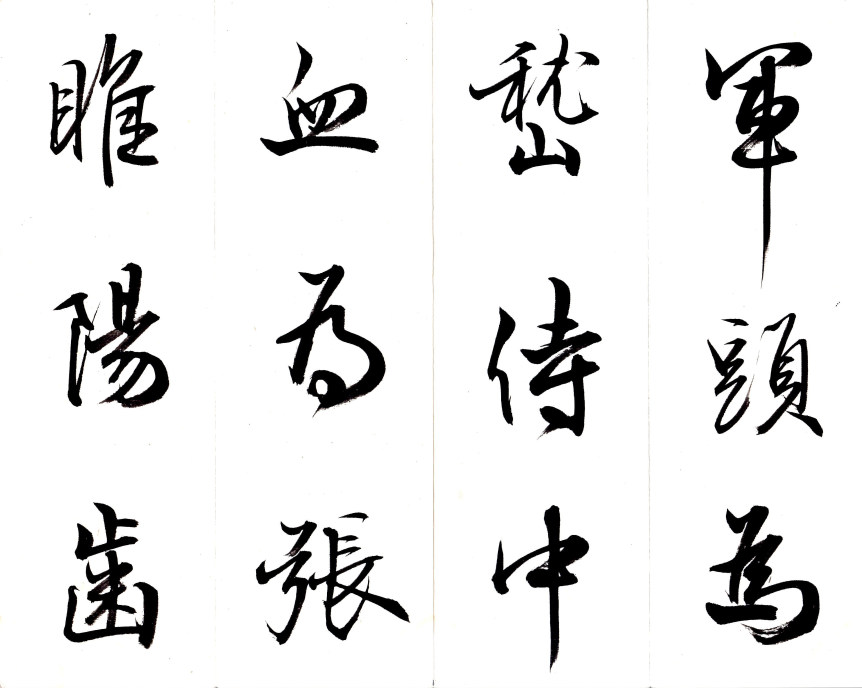 軍頭為
嵇侍中
血為張
睢陽齒